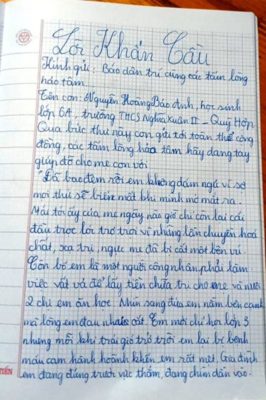 Lời Khẩn Cầu
Kính gửi: Báo dân trí cùng các tấm lòng
hảo tâm.
Tên con: Nguyễn Hoàng Bảo Anh, học sinh
lớp 6A, trường THCS Nghĩa Xuân II - Quỳ Hợp
Qua bức thư này con gửi tới toàn thể cộng
đồng, các tấm lòng hảo tâm hãy dang tay
giúp đỡ cho mẹ con với.
"Đã bao đêm rồi em không dám ngủ vì sợ
mọi thứ sẽ biến mất khi mình mở mắt ra.
Mái tóc của mẹ ngày nào giờ chỉ còn lại cái
đầu trọc lóc trơ trọi vì những lần chuyền hoá
chất, xạ trị, ngực mẹ đã bị cắt một bên vú.
Còn bố em là một người công nhân phải làm
việc vất vả để lấy tiền chữa trị cho mẹ và nuôi
2 chị em ăn học. Nhìn sang đứa em nằm bên cạnh
mà lòng em đau nhói. Em mới chỉ học lớp 3
nhưng mỗi khi trái gió trở trời em lại bị bệnh
máu cam hành hoành khiến em rất mệt, Gia đình
em đang đứng trước vực thẳm, đang chìm dần vào